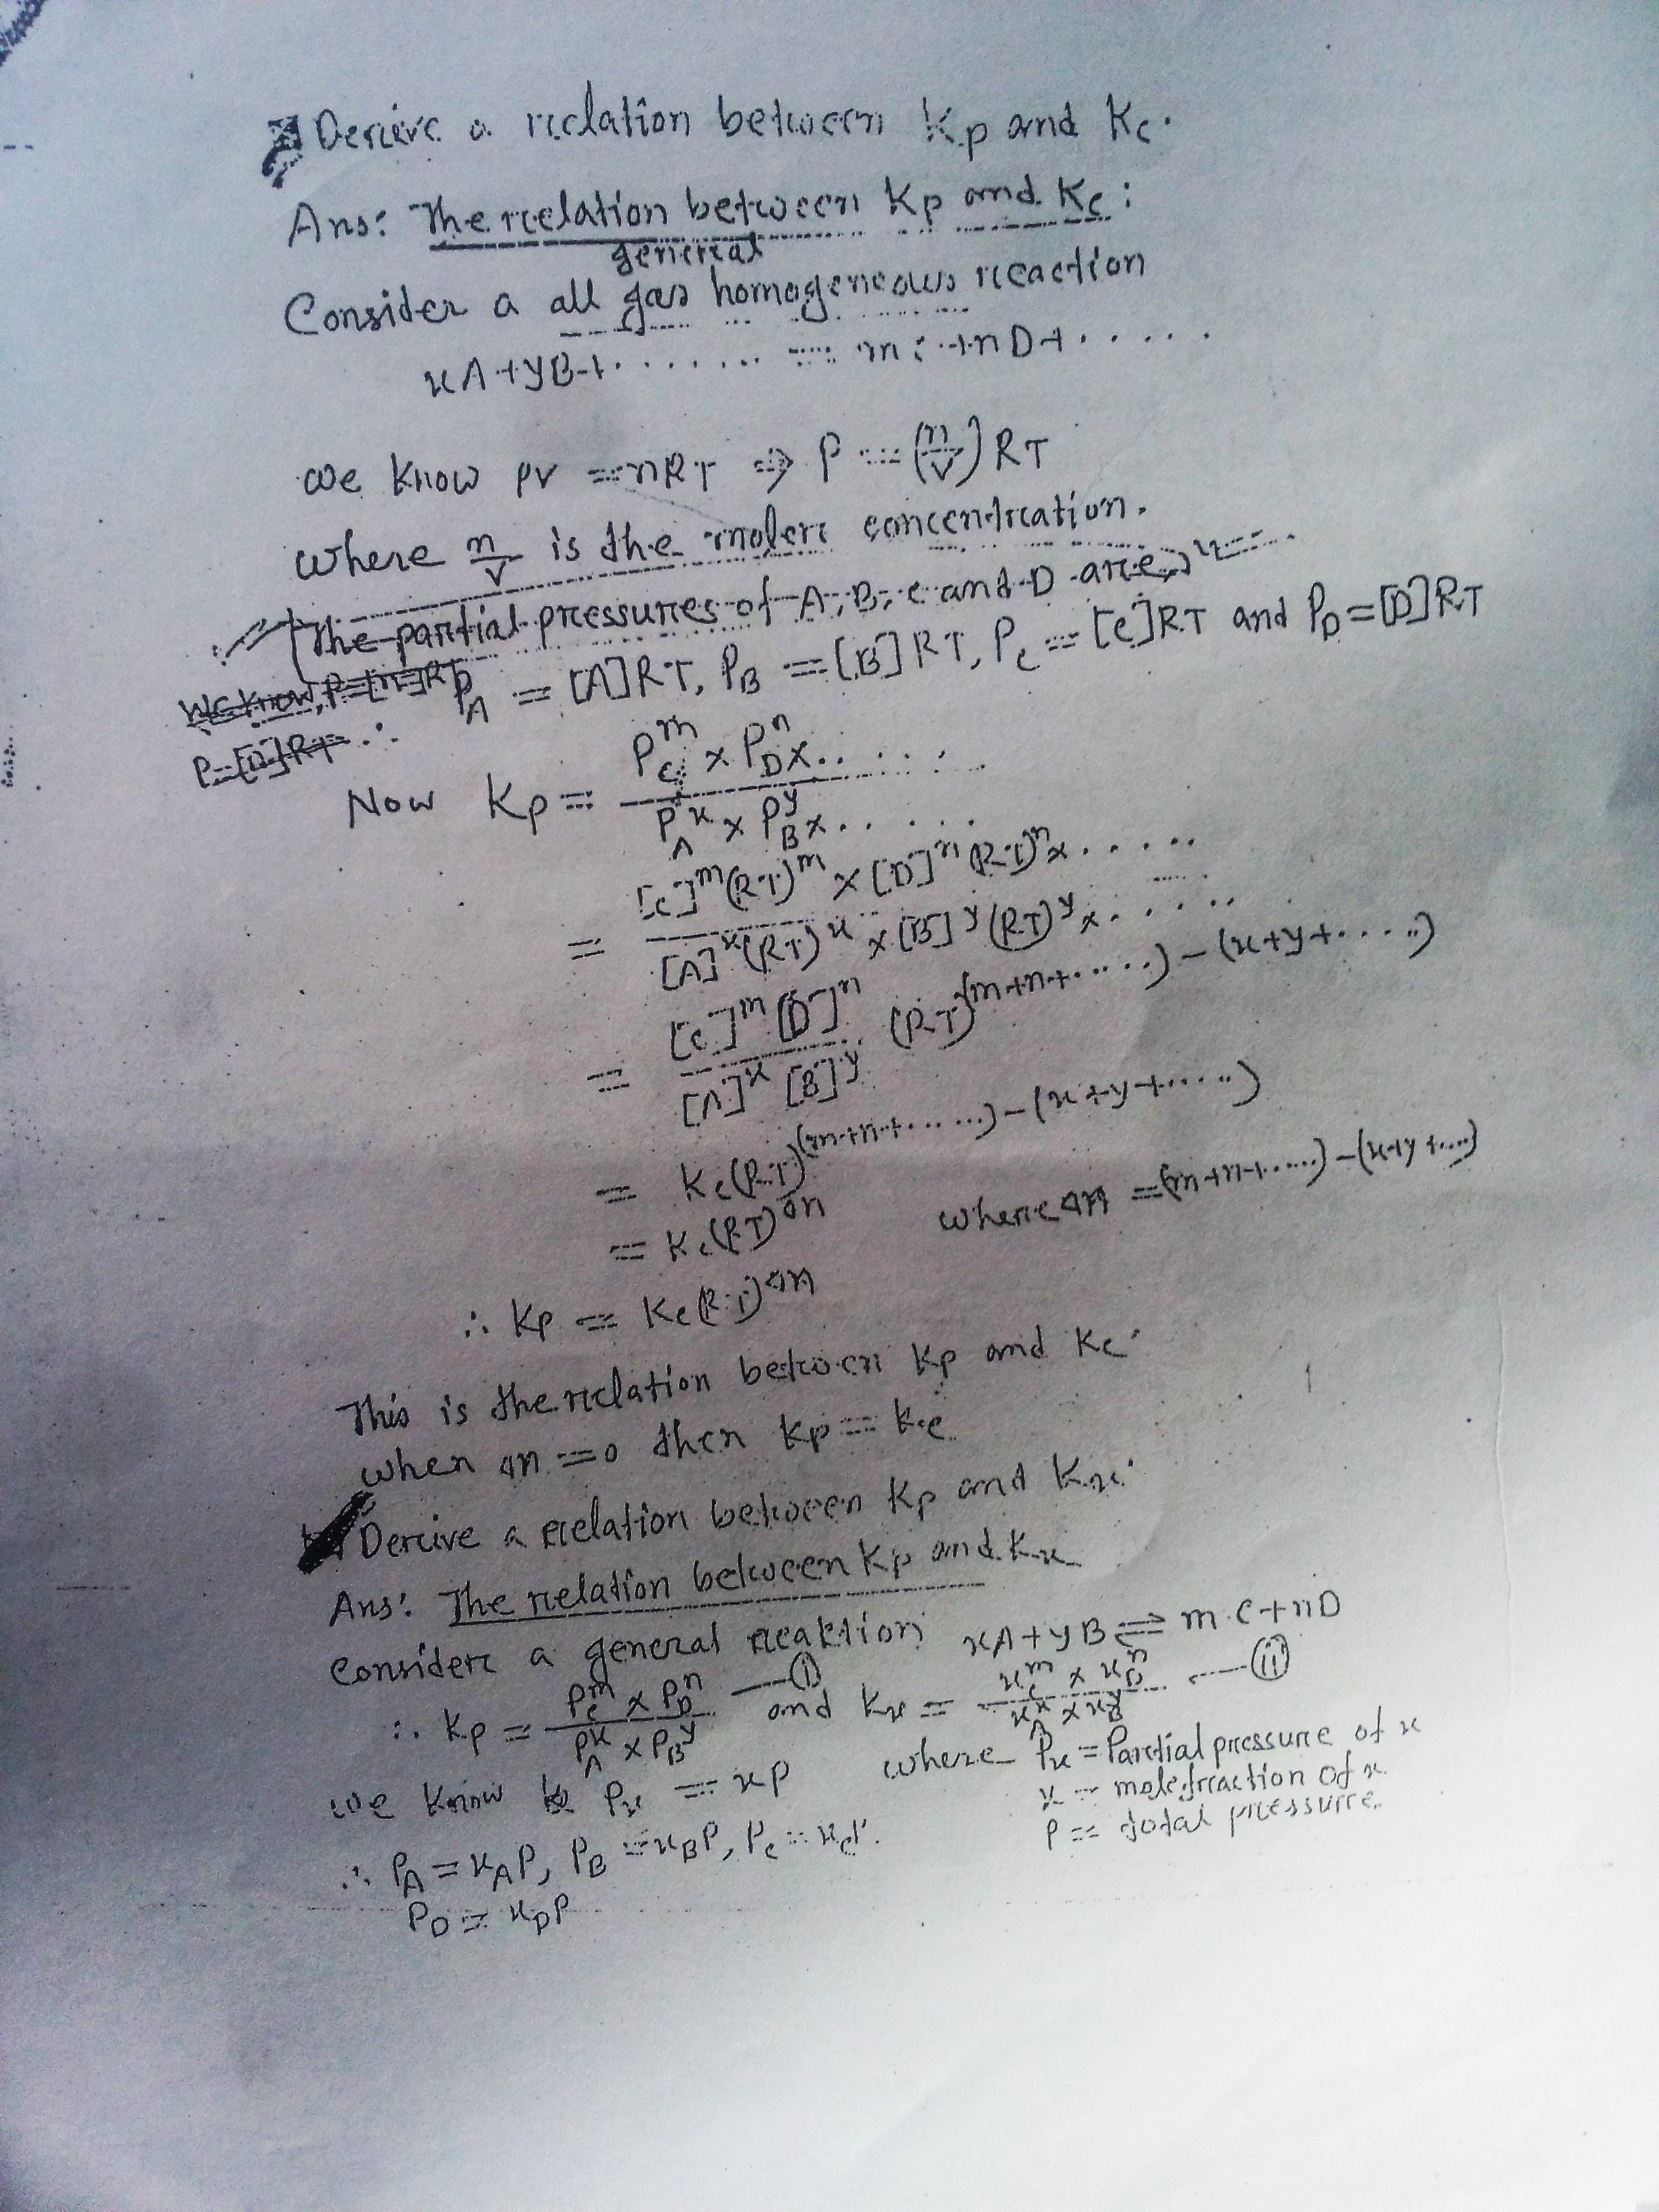 Derive a relation between Kp and Kc.
Ans: The relation between Kp and Kc :
general
Consider a all gas homogeneous reaction
xA+yB+....... = mC+nD+.....
We know PV = nRT ⇒ P = (n/V)RT
Where n/V is the molar concentration.
The partial pressures of A, B, C and D are,
We know, P=[n]RT
P_A = [A]RT, P_B = [B]RT, P_C = [C]RT and P_D = [D]RT
P=[D]RT ∴
Now Kp = P_C^m × P_D^n × ...... / P_A^x × P_B^y × ......
= [C]^m(RT)^m × [D]^n(RT)^n × ..... / [A]^x(RT)^x × [B]^y(RT)^y × .....
= [C]^m [D]^n / [A]^x [B]^y (RT)^(m+n+.....)-(x+y+.....)
= Kc(RT)^(m+n+.....)-(x+y+.....)
= Kc(RT)^Δn where Δn = (m+n+.....)-(x+y+....)
∴ Kp = Kc(RT)^Δn
This is the relation between Kp and Kc.
When Δn = 0 then Kp = Kc
Derive a relation between Kp and Kx.
Ans: The relation between Kp and Kx
Consider a general reaktion xA+yB ⇌ mC+nD
∴ Kp = P_C^m × P_D^n / P_A^x × P_B^y —(i) and Kx = x_C^m × x_D^n / x_A^x × x_B^y —(ii)
We know P_x = xP where P_x = Partial pressure of x
x = mole fraction of x.
P = total pressure.
∴ P_A = x_A P, P_B = x_B P, P_C = x_C P.
P_D = x_D P